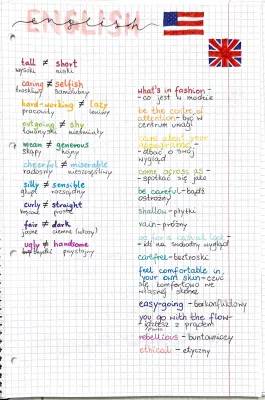 ENGLISH
english
tall ≠ short
wysoki niski
caring ≠ selfish
troskliwy samolubny
hard-working ≠ lazy
pracowity leniwy
outgoing ≠ shy
towarzyski nieśmiały
mean ≠ generous
skąpy hojny
cheerful ≠ miserable
radosny nieszczęśliwy
silly ≠ sensible
głupi rozsądny
curly ≠ straight
kręcone proste
fair ≠ dark
jasne ciemne
ugly ≠ handsome
brzydki przystojny
what's in fashion -
- co jest w modzie
be the centre of
attention - być w
centrum uwagi
care about your
appearance -
- dbać o swój
wygląd
come across as -
- spotkać się jako
be careful - bądź
ostrożny
shallow - płytki
vain - próżny
go for a casual look -
- iść na swobodny wygląd
carefree - beztroski
feel comfortable in
your own skin - czuć
się komfortowo we
własnej skórze
easy-going - bezkonfliktowy
you go with the flow -
- idziesz z prądem
rebellious - buntowniczy
ethical - etyczny